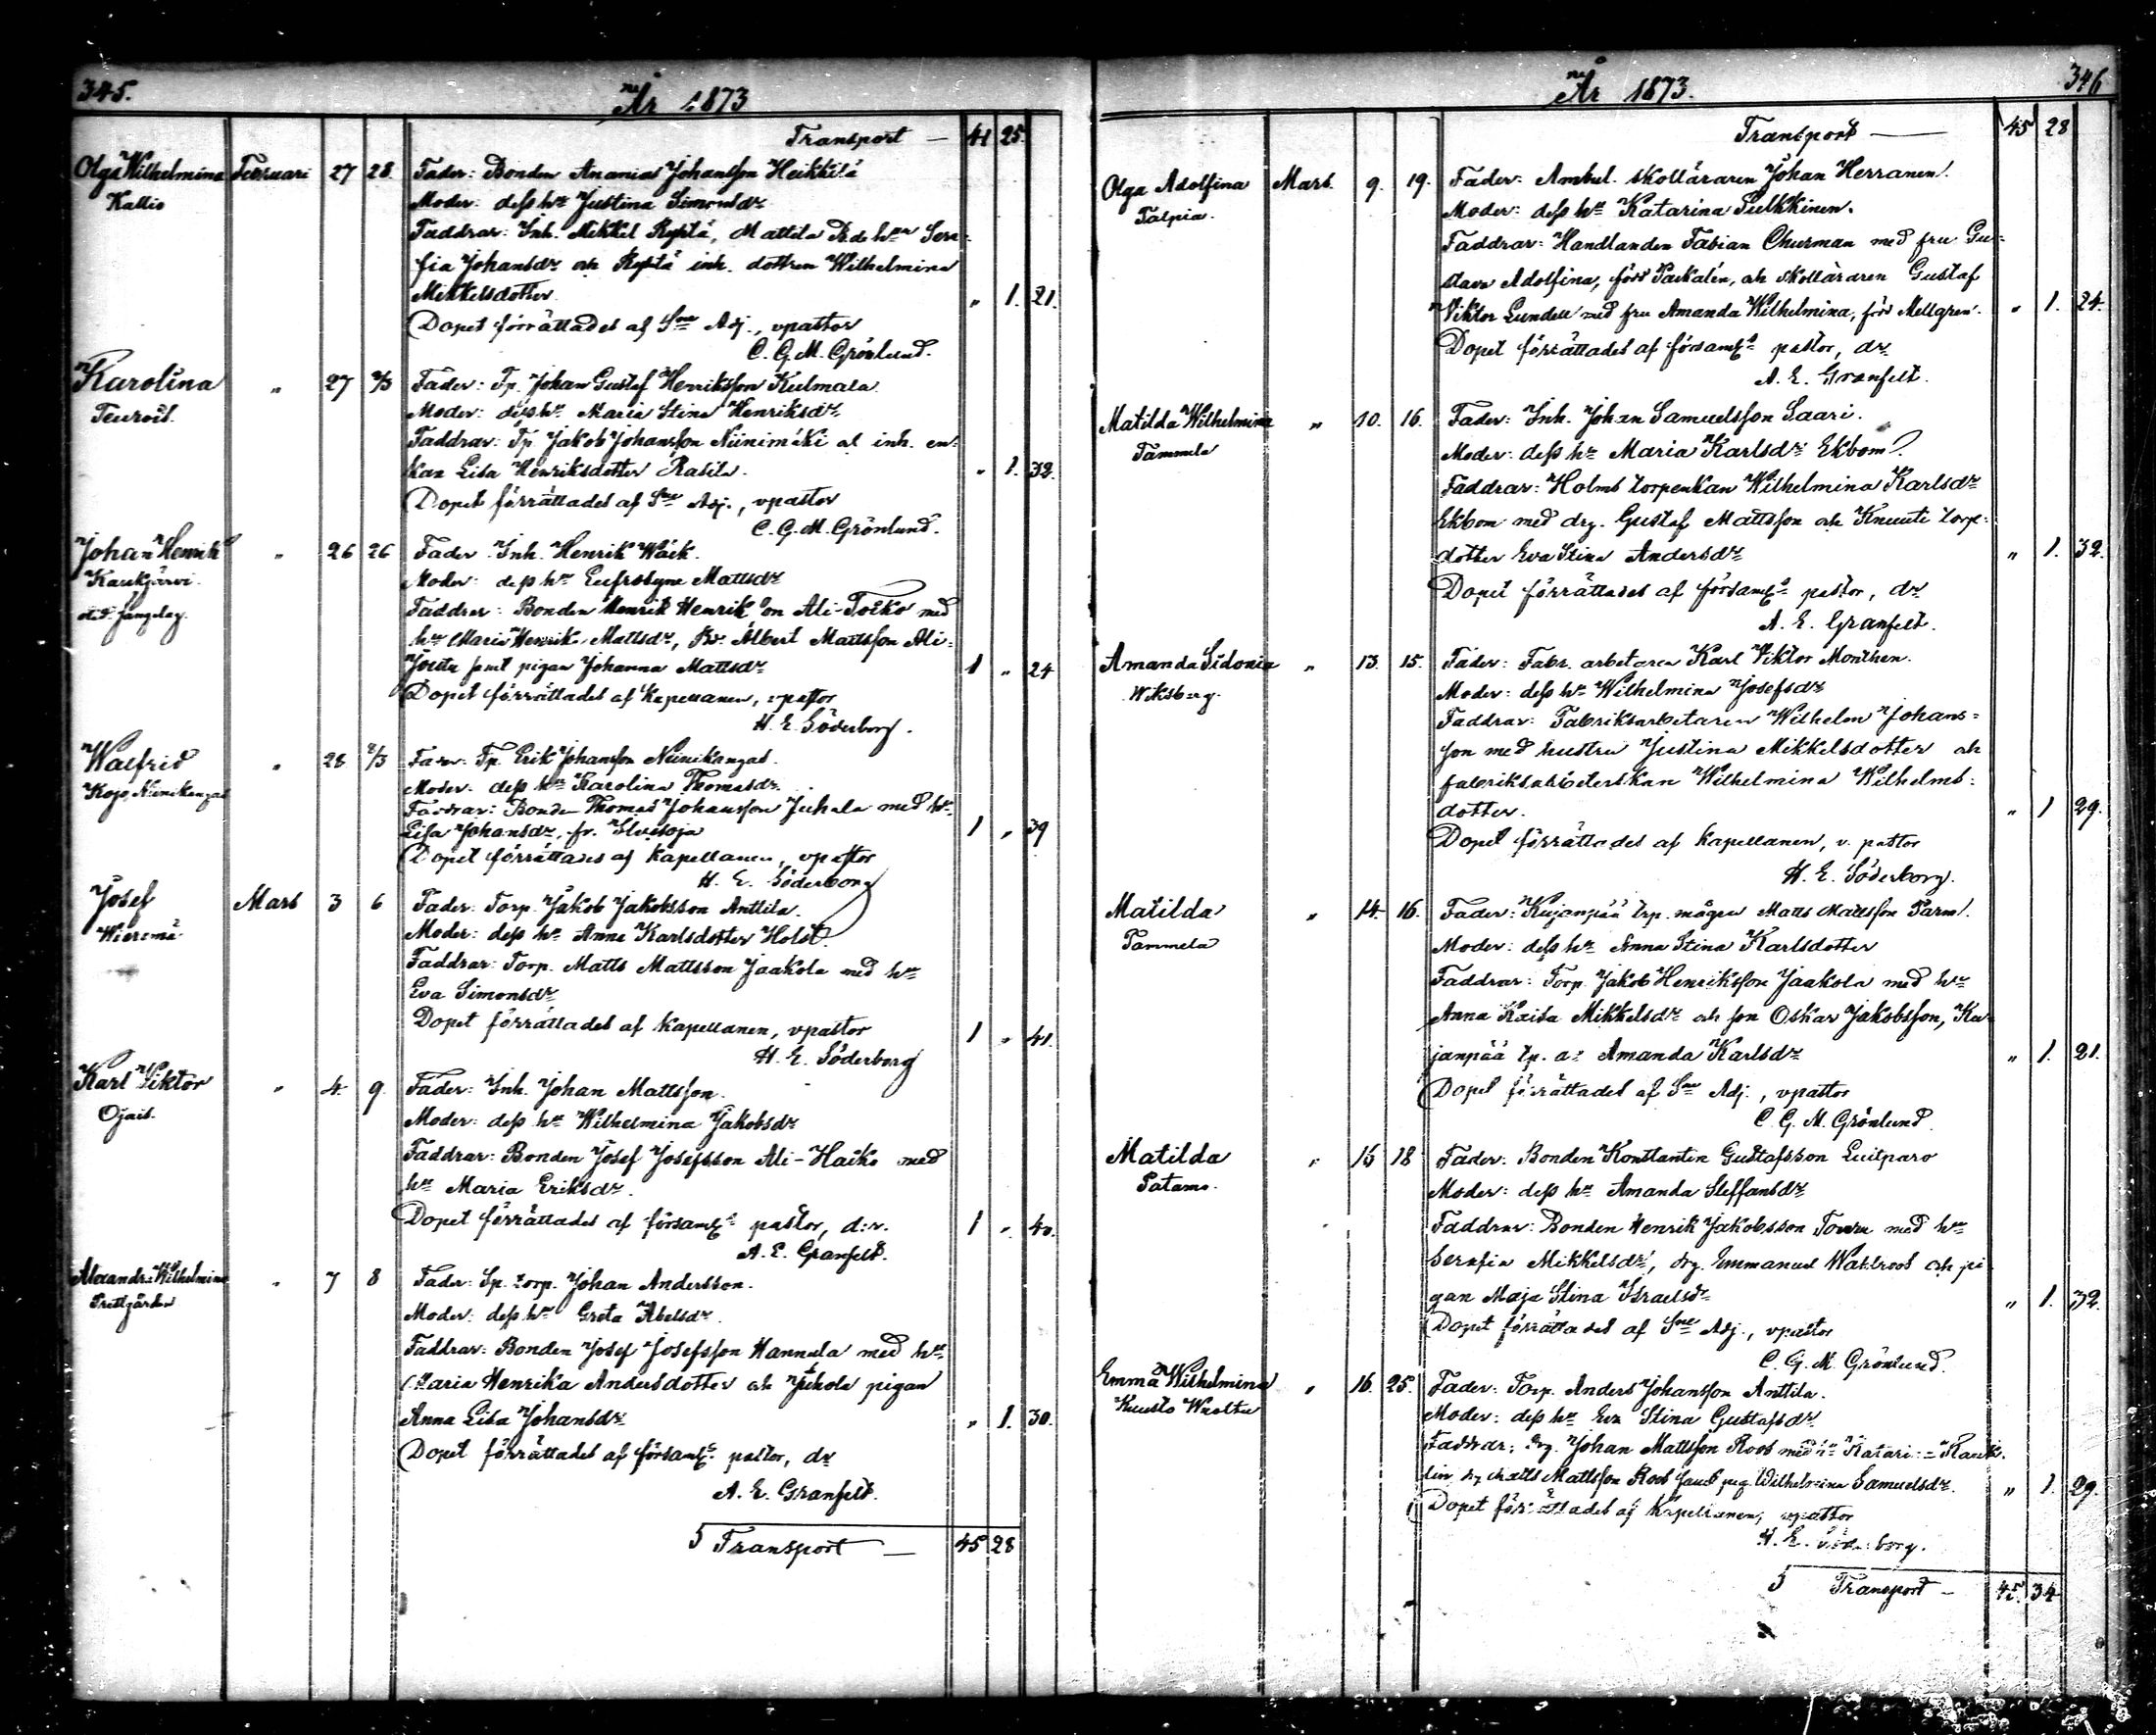 345.
År 1873
Transport — 41 25.
Olga Wilhelmina Februari 27 28 Fader: Bonden Ananias Johansson Heikkilä
Kallio Moder: dess hu Justina Simonsdr
Faddrar: Inh. Mikkel Reptä, Mattila hu Sera-
fia Johansdr och Reptä inh. dottren Wilhelmina
Mikkelsdotter. " 1. 21.
Dopet förrättades af Sne Adj., vpastor
C. G. M. Grönlund.
Karolina " 27 2/3 Fader: Tp. Johan Gustaf Henriksson Kulmala
Teuro Moder: dess hu Maria Stina Henriksdr
Faddrar: Tp. Jakob Johansson Niinimäki och inh. en-
kan Lisa Henriksdotter Rasila. " 1. 32.
Dopet förrättades af Sne Adj., vpastor
C. G. M. Grönlund.
Johan Henrik " 26 26 Fader Inh. Henrik Wäck.
Kaukjärvi Moder: dess hu Eufrosyne Mattsdr
Faddrar: Bonden Henrik Henriksson Ali-Toiko med
hu Maria Henrika Mattsdr, Albert Mattsson Ali-
samt pigan Johanna Mattsdr 1 " 24
Dopet förrättades af Kapellanen, vpastor
H. E. Söderborg.
Walfrid " 28 2/3 Fader: Tp. Erik Johansson Niinikangas.
Kojo, Niinikangas Moder: dess hu Karolina Thomasdr
Faddrar: Bonden Thomas Johansson Juhala med hu
Lisa Johansdr, fr. 1 " 39
Dopet förrättades af Kapellanen, vpastor
H. E. Söderborg
Josef Mars 3 6 Fader: Torp. Jakob Jakobsson Anttila.
Wieremä Moder: dess hu Anna Karlsdotter Holst.
Faddrar: Torp. Matts Mattsson Jaakola med hu
Eva Simonsdr
Dopet förrättades af Kapellanen, vpastor 1 " 41.
H. E. Söderborg
Karl Viktor " 4. 9. Fader: Inh. Johan Mattsson.
Ojais. Moder: dess hu Wilhelmina Jakobsdr
Faddrar: Bonden Josef Josefsson Ali-Haiko med
hu Maria Eriksdr.
Dopet förrättades af församl:s pastor, d:r. 1 " 40.
A. E. Granfelt.
Alexandra Wilhelmina " 7 8 Fader: Sp. torp. Johan Andersson.
Prestgården Moder: dess hu Greta Abelsdr.
Faddrar: Bonden Josef Josefsson Hannula med hu
Maria Henrika Andersdotter och Juhola pigan
Anna Lisa Johansdr " 1. 30.
Dopet förrättades af församl:s pastor, dr
A. E. Granfelt.
5 Transport — 45 28
346
År 1873.
Transport — 45 28
Olga Adolfina Mars. 9. 19. Fader: Ambul. skolläraren Johan Herranen.
Talpia. Moder: dess hu Katarina Pulkkinen.
Faddrar: Handlanden Fabian Churman med fru Gu-
stava Adolfina, född Packalén, och skolläraren Gustaf
Viktor Lundell med fru Amanda Wilhelmina, född Mellgren. " 1. 24.
Dopet förrättades af församl:s pastor, dr
A. E. Granfelt.
Matilda Wilhelmina " 10. 16. Fader: Inh. Johan Samuelsson Saari.
Tammela Moder: dess hu Maria Karlsdr Ekbom.
Faddrar: Holms torpenkan Wilhelmina Karlsdr
Ekbom med drg. Gustaf Mattsson och Knuuti torp-
dotter Eva Stina Andersdr " 1. 32.
Dopet förrättades af församl:s pastor, dr
A. E. Granfelt.
Amanda Sidonia " 13. 15. Fader: Fabr. arbetaren Karl Viktor Monthen.
Wiksberg. Moder: dess hu Wilhelmina Josefsdr
Faddrar: Fabriksarbetaren Wilhelm Johans-
son med hustru Justina Mikkelsdotter och
fabriksarbeterskan Wilhelmina Wilhelms-
dotter. " 1 29.
Dopet förrättades af Kapellanen, v. pastor
H. E. Söderborg.
Matilda " 14. 16. Fader: Kujanpää trp. mågen Matts Mattsson Parm.
Tammela Moder: dess hu Anna Stina Karlsdotter
Faddrar: Torp. Jakob Henriksson Jaakola med hu
Anna Kaisa Mikkelsdr och son Oskar Jakobsson, Ku-
janpää tp. Amanda Karlsdr " 1. 21.
Dopet förrättades af Sne Adj., vpastor
C. G. M. Grönlund.
Matilda " 15 18 Fader: Bonden Konstantin Gustafsson Luilparo
Patamo. Moder: dess hu Amanda Steffansdr
Faddrar: Bonden Henrik Jakobsson med hu
Serafia Mikkelsdr, drg. Emmanuel Wahlroos och pi-
gan Maja Stina Israelsdr " 1. 32.
Dopet förrättades af Sne Adj., vpastor
C. G. M. Grönlund.
Emma Wilhelmina " 16. 25. Fader: Torp. Anders Johansson Anttila.
Kuusto Moder: dess hu Eva Stina Gustafsdr
Faddrar: drg. Johan Mattsson Roos med hu
drg Matts Mattsson Roos samt pig. Wilhelmina Samuelsdr. " 1. 29.
Dopet förrättades af Kapellanen, vpastor
H. E. Söderborg.
5 Transport — 45. 34